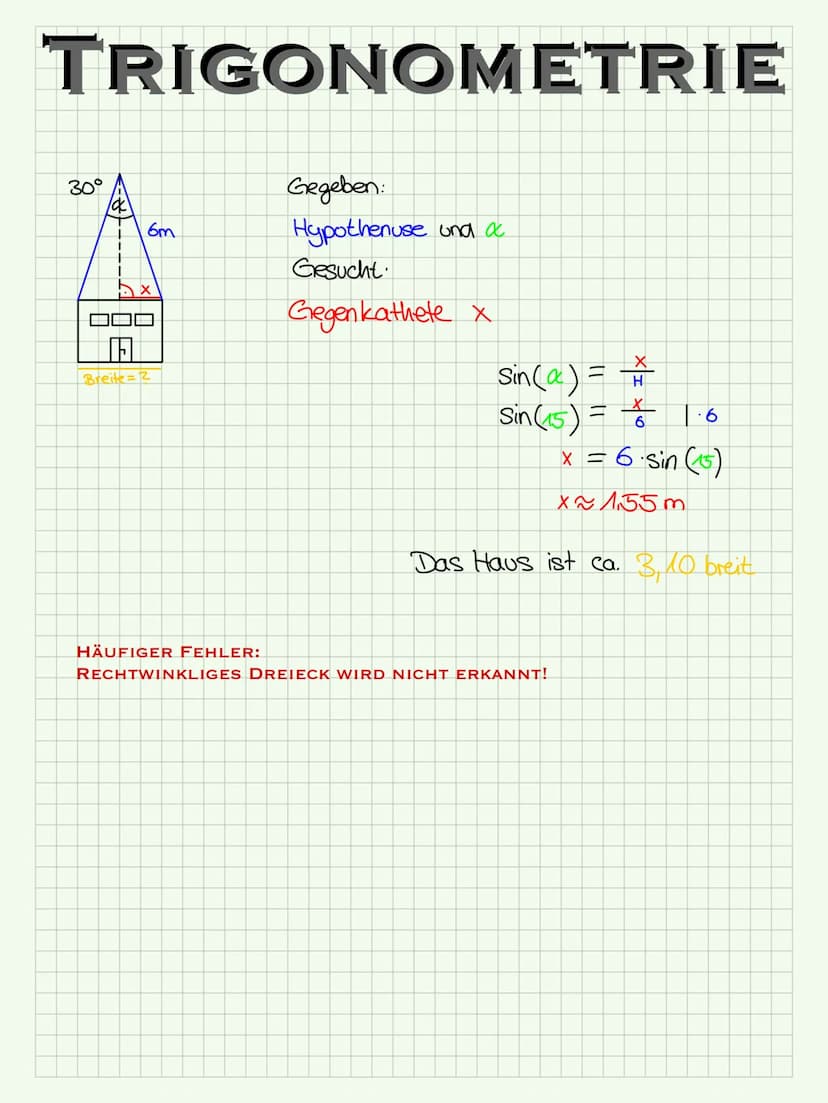 TRIGONOMETRIE
30°
α
6m
x
Breite = ?
Gegeben:
Hypothenuse und α
Gesucht:
Gegenkathete x
sin(α) = x/H
sin(15) = x/6 | · 6
x = 6 · sin (15)
x ≈ 1,55 m
Das Haus ist ca. 3,10 breit
HÄUFIGER FEHLER:
RECHTWINKLIGES DREIECK WIRD NICHT ERKANNT!